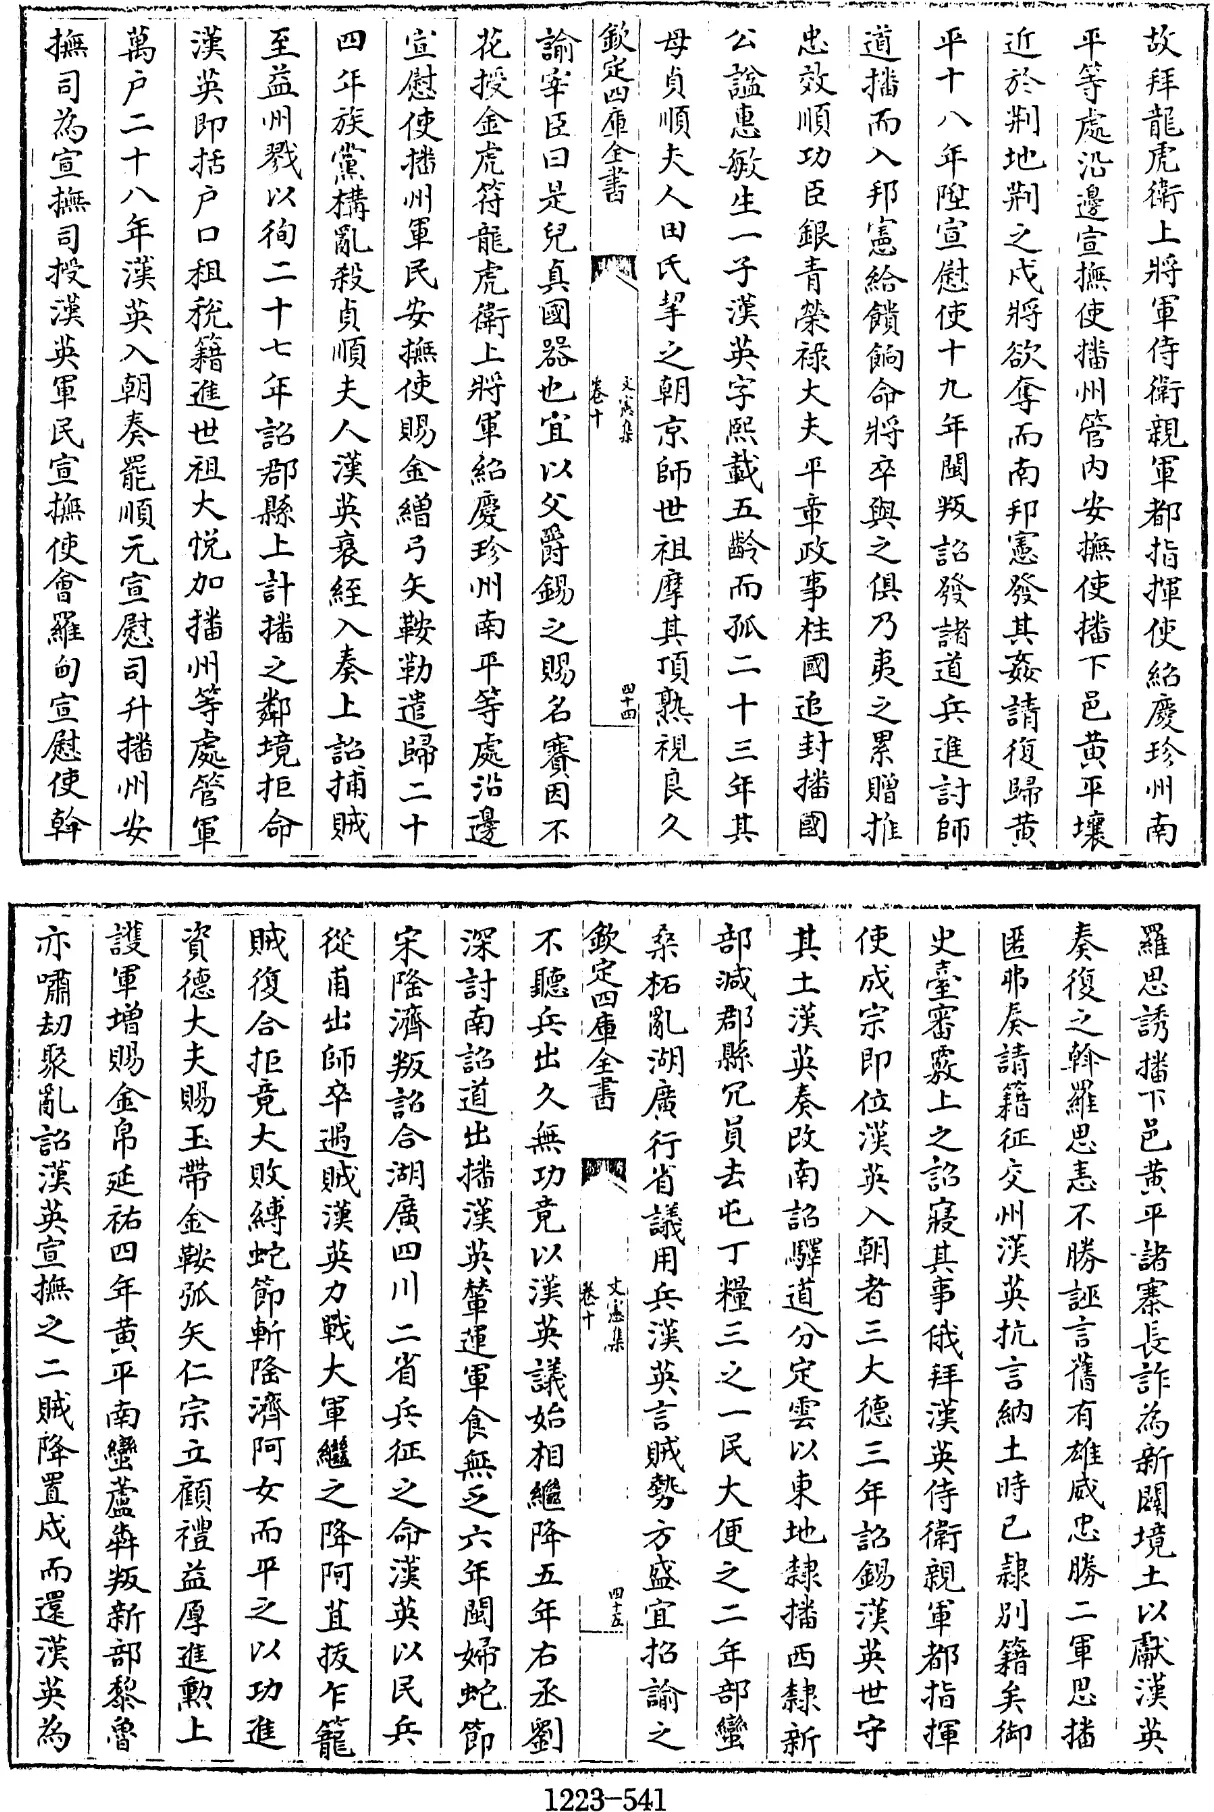 故拜龍虎衛上將軍侍衛親軍都指揮使紹慶珍州南
平等處沿邊宣撫使播州管内安撫使播下邑黄平壤
近於荆地荆之戍將欲奪而南邦憲發其姦請復歸黄
平十八年陞宣慰使十九年閩叛詔發諸道兵進討師
道播而入邦憲給饋餉命將卒與之俱乃夷之累贈推
忠效順功臣銀青榮禄大夫平章政事柱國追封播國
公諡惠敏生一子漢英字熙載五齡而孤二十三年其
母貞順夫人田氏挈之朝京師世祖摩其頂熟視良久
欽定四庫全書
文憲集
卷十
四十四
諭宰臣曰是兒真國器也宜以父爵錫之賜名賽因不
花授金虎符龍虎衛上將軍紹慶珍州南平等處沿邊
宣慰使播州軍民安撫使賜金繒弓矢鞍勒遣歸二十
四年族黨構亂殺貞順夫人漢英衰絰入奏上詔捕賊
至益州戮以徇二十七年詔郡縣上計播之鄰境拒命
漢英即括户口租稅籍進世祖大悅加播州等處管軍
萬户二十八年漢英入朝奏罷順元宣慰司升播州安
撫司為宣撫司授漢英軍民宣撫使會羅甸宣慰使斡
羅思誘播下邑黄平諸寨長詐為新闢境土以獻漢英
奏復之斡羅思恚不勝誣言舊有雄威忠勝二軍思播
匿弗奏請籍征交州漢英抗言納土時已隷别籍矣御
史臺審覈上之詔寢其事俄拜漢英侍衛親軍都指揮
使成宗即位漢英入朝者三大德三年詔錫漢英世守
其土漢英奏改南詔驛道分定雲以東地隷播西隷新
部減郡縣冗員去屯丁糧三之一民大便之二年部蠻
桑柘亂湖廣行省議用兵漢英言賊勢方盛宜招諭之
欽定四庫全書
文憲集
卷十
四十五
不聽兵出久無功竟以漢英議始相繼降五年右丞劉
深討南詔道出播漢英輦運軍食無乏六年閩婦蛇節
宋隆濟叛詔合湖廣四川二省兵征之命漢英以民兵
從甫出師卒遇賊漢英力戰大軍繼之降阿苴拔乍籠
賊復合拒竟大敗縛蛇節斬隆濟阿女而平之以功進
資德大夫賜玉帶金鞍弧矢仁宗立顧禮益厚進勲上
護軍增賜金帛延祐四年黄平南蠻蘆犇叛新部黎魯
亦嘯劫聚亂詔漢英宣撫之二賊降置戍而還漢英為
1223-541